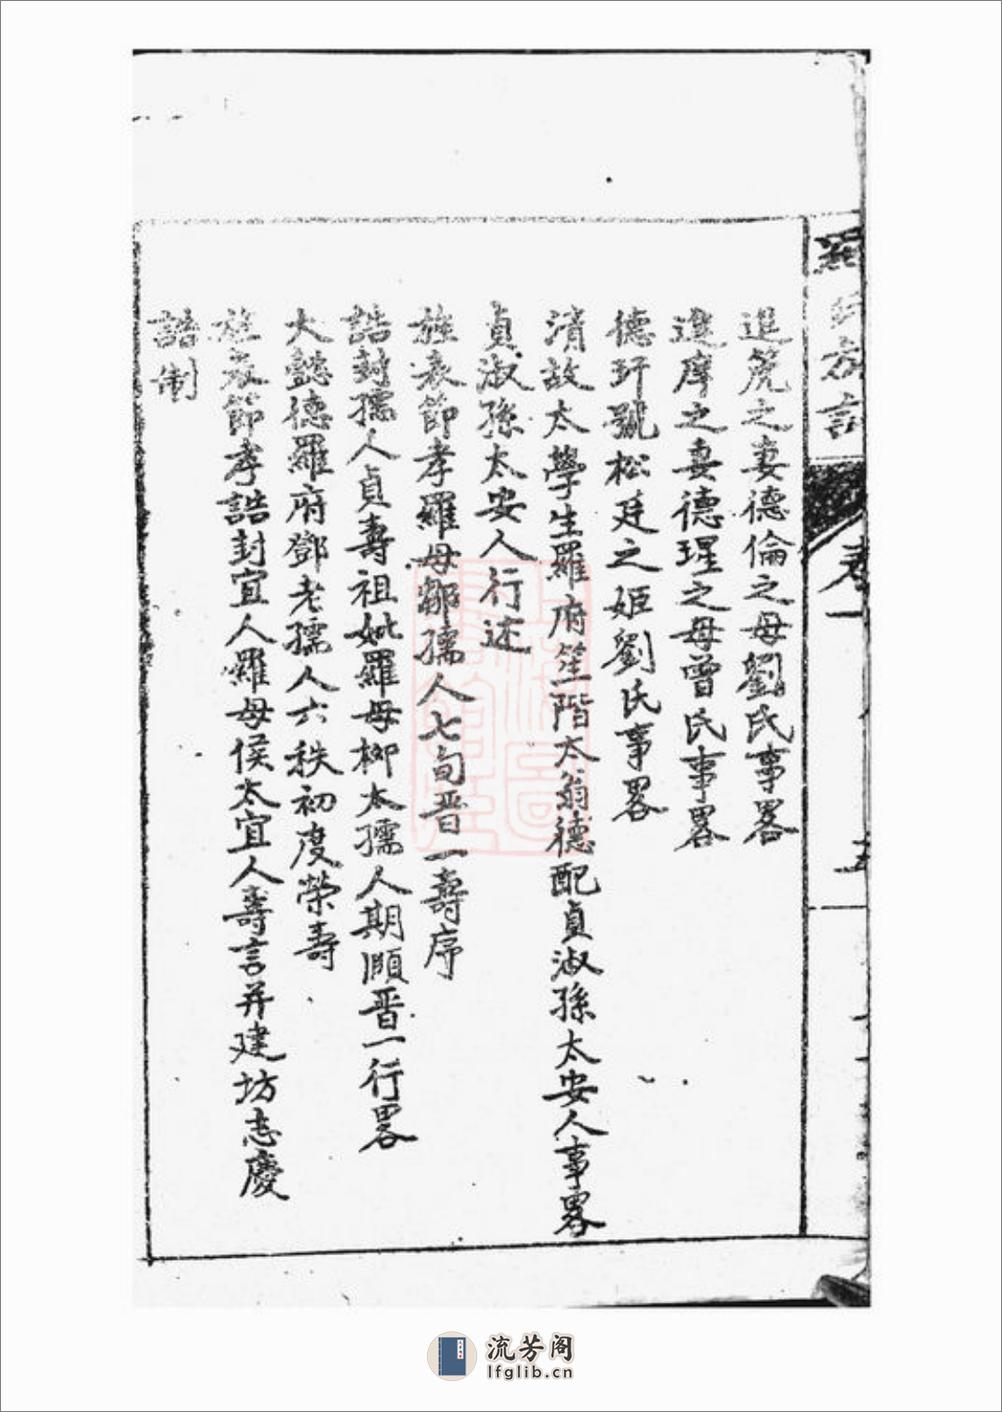 羅氏族譜
卷一
五
進篪之妻德倫之母劉氏事畧
進庠之妻德瑆之母曾氏事畧
德玕號松廷之姬劉氏事畧
清故太學生羅府笙階太翁德配貞淑孫太安人事畧
貞淑孫太安人行述
旌表節孝羅母鄒孺人七旬晋一壽序
誥封孺人貞壽祖妣羅母柳太孺人期頤晋一行畧
大懿德羅府鄧老孺人六秩初度榮壽
旌表節孝誥封宜人羅母侯太宜人壽言并建坊志慶
誥制
流芳阁
lfglib.cn